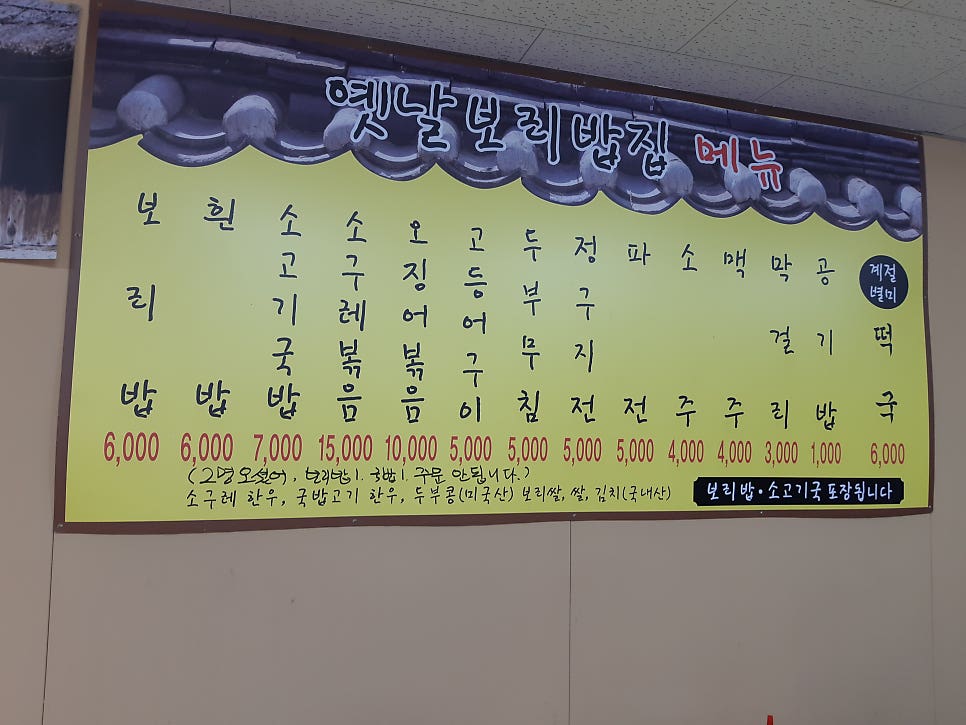 옛날보리밥집 메뉴
보리밥 6,000
흰밥 6,000
소고기국밥 7,000
소구레볶음 15,000
오징어볶음 10,000
고등어구이 5,000
두부무침 5,000
정구지전 5,000
파전 5,000
소주 4,000
맥주 4,000
막걸리 3,000
공기밥 1,000
계절별미 떡국 6,000
(2명 오셨어, 보리밥1. 국밥1. 주문 안됩니다.)
소구레 한우, 국밥고기 한우, 두부콩(미국산) 보리쌀, 쌀, 김치(국내산)
보리밥·소고기국 포장됩니다